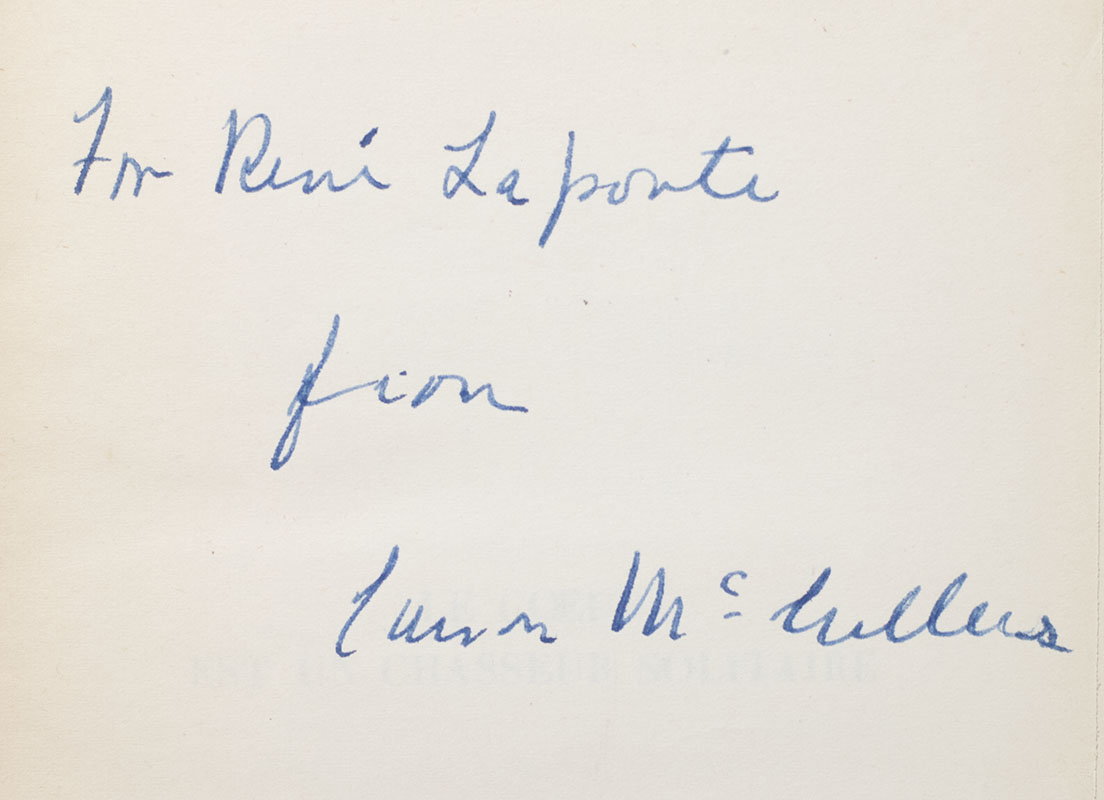 For René Laporte
from
Carson McCullers
LE COEUR
EST UN CHASSEUR SOLITAIRE